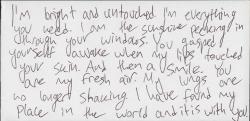 I'm bright and untouched I'm everything
you need. I am the sunshine peaking in
through your windows. You gasped
yourself awake when my lips touched
your skin. And then a smile. You
are my fresh air. My lungs are
no longer shaking I have found my
Place in the world and it is with you